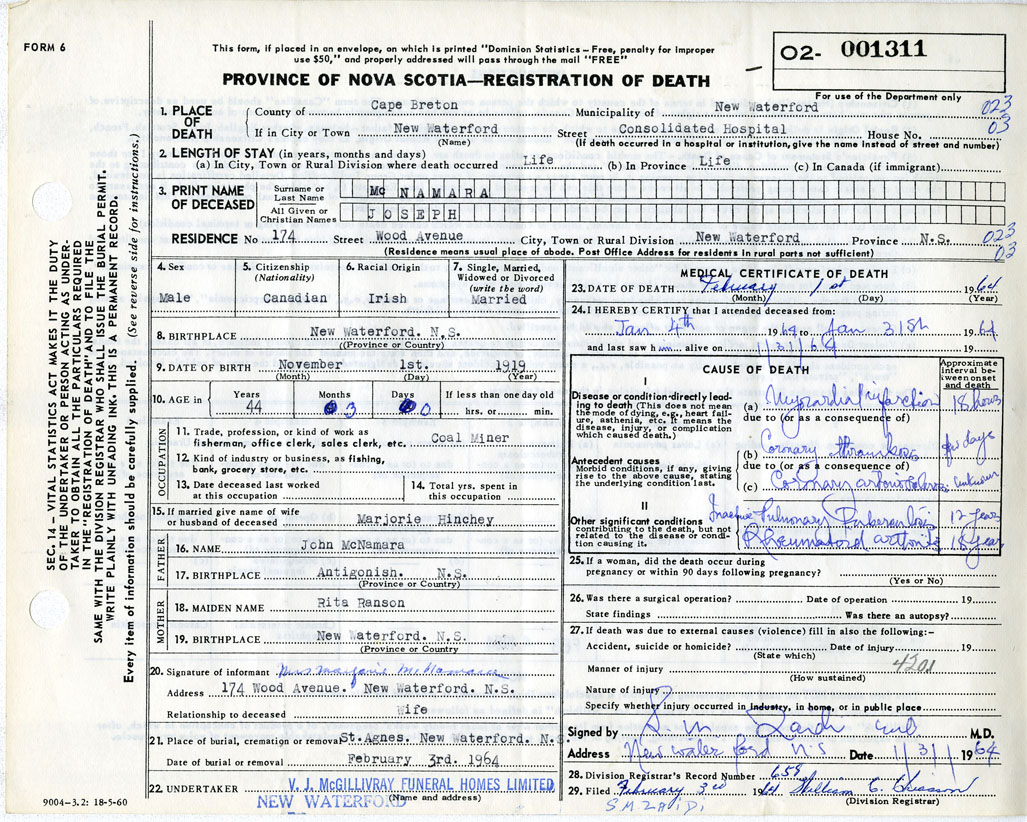 FORM 6
This form, if placed in an envelope, on which is printed "Dominion Statistics – Free, penalty for improper
use $50," and properly addressed will pass through the mail "FREE"
PROVINCE OF NOVA SCOTIA—REGISTRATION OF DEATH
02- 001311
For use of the Department only
023
03
1. PLACE OF DEATH
County of Cape Breton Municipality of New Waterford
If in City or Town New Waterford Street Consolidated Hospital House No.
(Name) (If death occurred in a hospital or institution, give the name instead of street and number)
2. LENGTH OF STAY (in years, months and days)
(a) In City, Town or Rural Division where death occurred Life (b) In Province Life (c) In Canada (if immigrant)
3. PRINT NAME OF DECEASED
Surname or Last Name Mc NAMARA
All Given or Christian Names JOSEPH
RESIDENCE No 174 Street Wood Avenue City, Town or Rural Division New Waterford Province N.S.
(Residence means usual place of abode. Post Office Address for residents in rural parts not sufficient)
023
03
4. Sex Male
5. Citizenship (Nationality) Canadian
6. Racial Origin Irish
7. Single, Married, Widowed or Divorced (write the word) Married
8. BIRTHPLACE New Waterford. N.S.
(Province or Country)
9. DATE OF BIRTH November 1st. 1919
(Month) (Day) (Year)
10. AGE in Years 44 Months 3 Days 0 If less than one day old hrs. or min.
OCCUPATION
11. Trade, profession, or kind of work as fisherman, office clerk, sales clerk, etc. Coal Miner
12. Kind of industry or business, as fishing, bank, grocery store, etc.
13. Date deceased last worked at this occupation
14. Total yrs. spent in this occupation
15. If married give name of wife or husband of deceased Marjorie Hinchey
FATHER
16. NAME John McNamara
17. BIRTHPLACE Antigonish. N.S.
(Province or Country)
MOTHER
18. MAIDEN NAME Rita Ranson
19. BIRTHPLACE New Waterford. N.S.
(Province or Country
20. Signature of informant Mrs Marjorie McNamara
Address 174 Wood Avenue. New Waterford. N.S.
Relationship to deceased Wife
21. Place of burial, cremation or removal St. Agnes. New Waterford. N.S.
Date of burial or removal February 3rd. 1964
22. UNDERTAKER V. J. McGILLIVRAY FUNERAL HOMES LIMITED
(Name and address)
NEW WATERFORD
9004—3.2: 18-5-60
MEDICAL CERTIFICATE OF DEATH
23. DATE OF DEATH February 1st 1964
(Month) (Day) (Year)
24. I HEREBY CERTIFY that I attended deceased from:
Jan 4th 1964 to Jan 31st 1964
and last saw him alive on 1/31/64
CAUSE OF DEATH
Approximate interval between onset and death
I
Disease or condition directly leading to death (This does not mean the mode of dying, e.g., heart failure, asthenia, etc. It means the disease, injury, or complication which caused death.)
(a) Myocardial infarction 18 hours
due to (or as a consequence of)
Antecedent causes
Morbid conditions, if any, giving rise to the above cause, stating the underlying condition last.
(b) Coronary thrombosis few days
due to (or as a consequence of)
(c) Coronary unknown
II
Other significant conditions contributing to the death, but not related to the disease or condition causing it.
Inactive Pulmonary Tuberculosis 12 years
Rheumatoid arthritis 18 years
25. If a woman, did the death occur during pregnancy or within 90 days following pregnancy?
(Yes or No)
26. Was there a surgical operation? Date of operation 19
State findings Was there an autopsy?
27. If death was due to external causes (violence) fill in also the following:–
Accident, suicide or homicide? Date of injury 19
(State which)
Manner of injury 4201
(How sustained)
Nature of injury
Specify whether injury occurred in industry, in home, or in public place
Signed by S. M. Zaidi M.D.
Address New Waterford N.S Date 1/31/ 1964
28. Division Registrar's Record Number 659
29. Filed February 3rd 1964 William C.
(Division Registrar)
S M ZAIDI
SEC. 14 – VITAL STATISTICS ACT MAKES IT THE DUTY
OF THE UNDERTAKER OR PERSON ACTING AS UNDER-
TAKER TO OBTAIN ALL THE PARTICULARS REQUIRED
IN THE "REGISTRATION OF DEATH" AND TO FILE THE
SAME WITH THE DIVISION REGISTRAR WHO SHALL ISSUE THE BURIAL PERMIT.
WRITE PLAINLY WITH UNFADING INK. THIS IS A PERMANENT RECORD.
Every item of information should be carefully supplied. (See reverse side for instructions.)